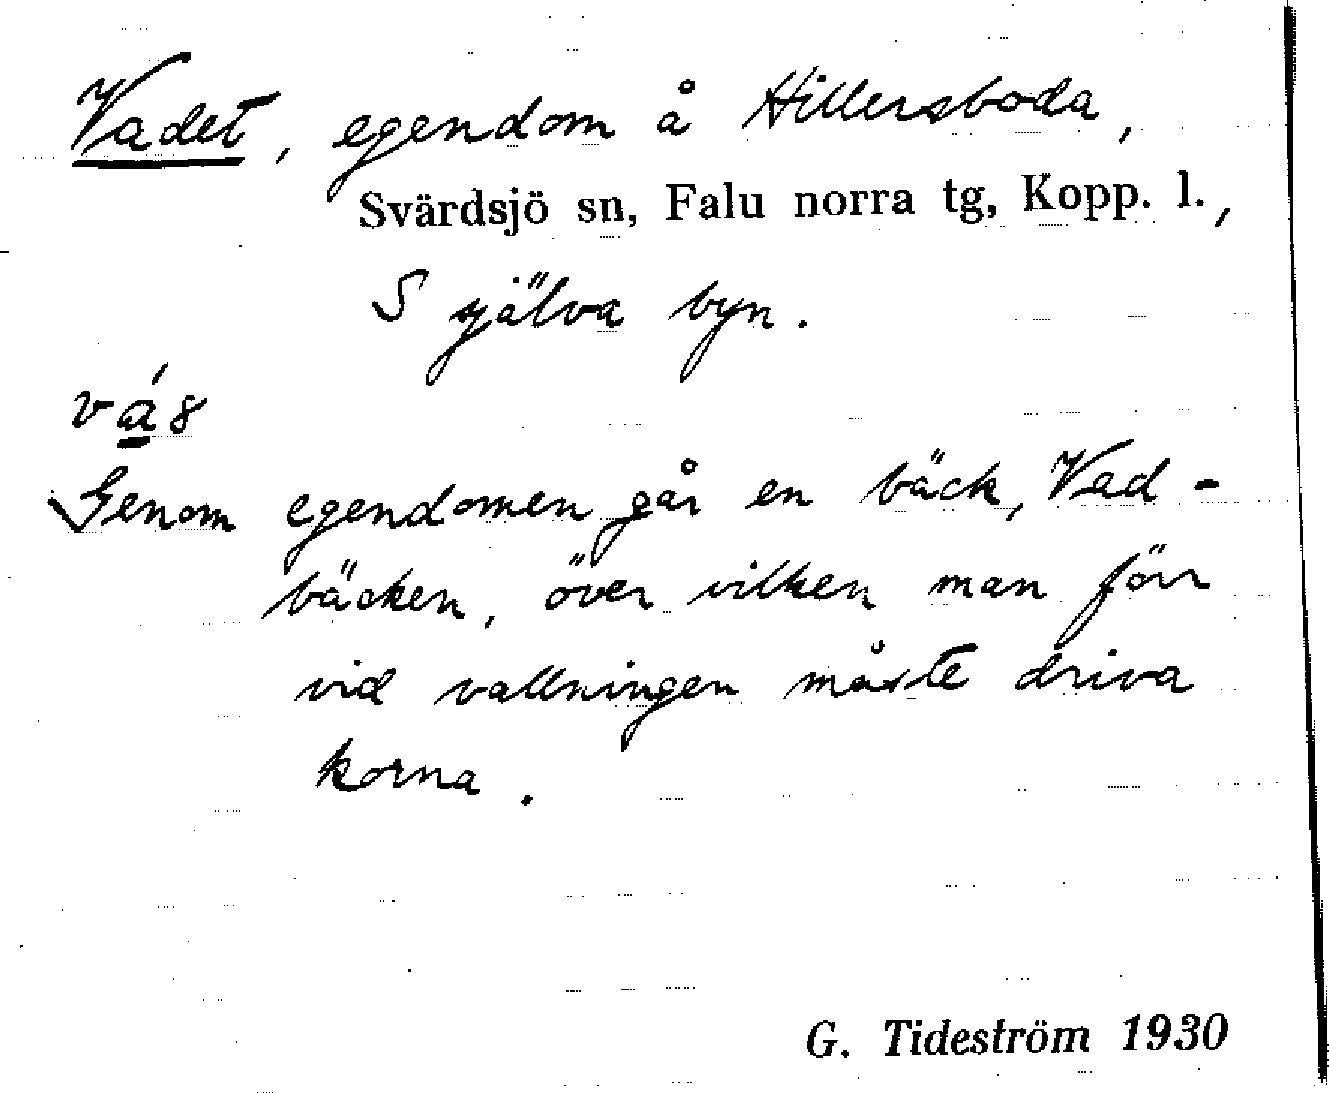 Vadet, egendom å Hillersboda,
Svärdsjö sn, Falu norra tg, Kopp. l.,
S själva byn.
vá8
Genom egendomen går en bäck, Vad-
bäcken, över vilken man förr
vid vallningen måste driva
korna.
G. Tideström 1930